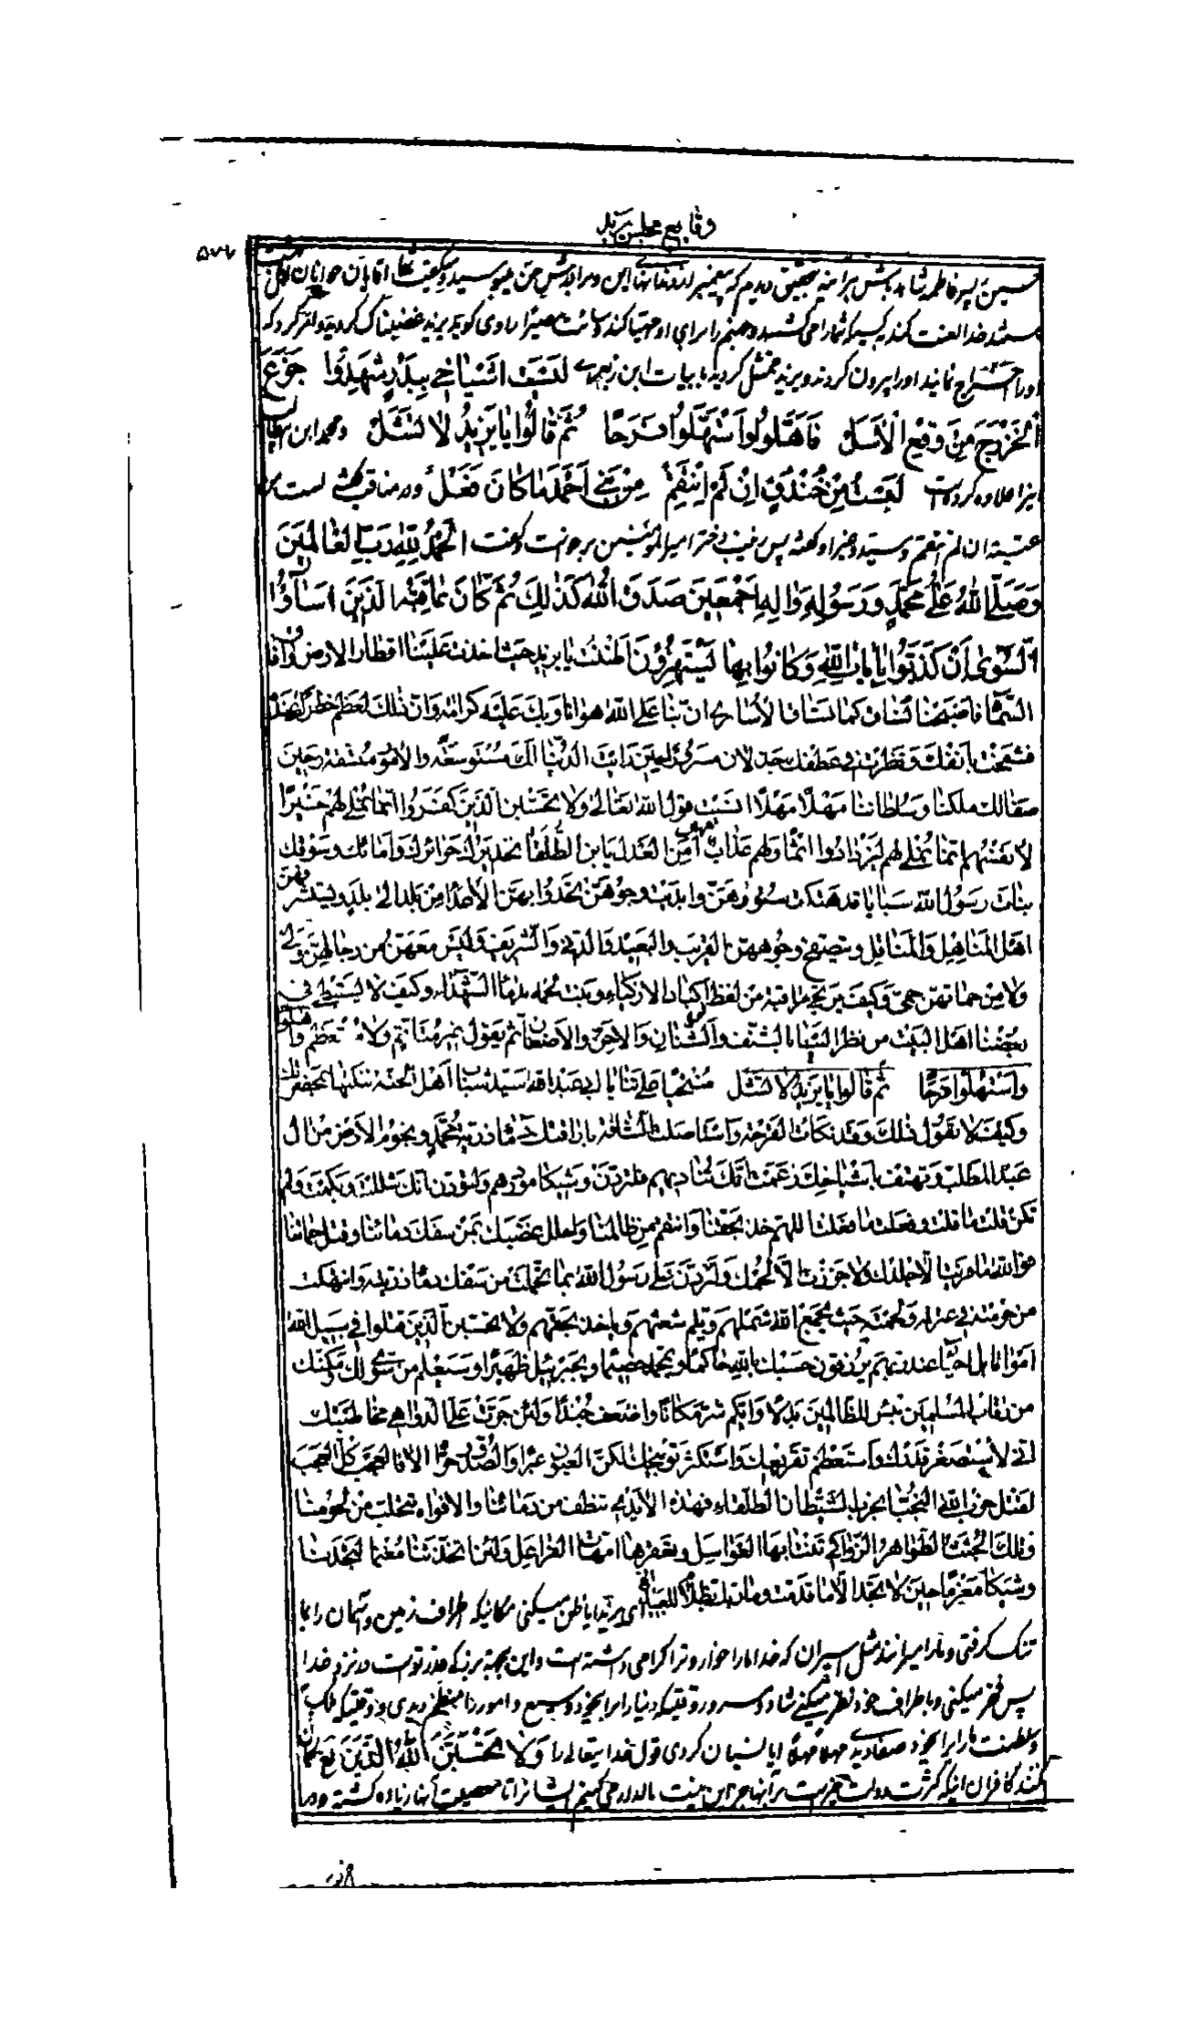 وقایع مجلس یزید
۵۷۷
حسین پسر فاطمه شاهد باش هر آینه بتحقیق دیدم که پیغمبر دندانهای این و برادرش حسن میبوسید و میگفت شما آقایان جوانان اهل
خدا لعنت کند کسیکه شما را می کشد و جهنم را برای او مهیا کند و سائت مصیرا راوی گوید یزید غضبناک گردید و امر کرد که
او را اخراج نمایند او را بیرون کردند و یزید متمثل گردید بابیات ابن زبعری لَیْتَ اَشْیاخی بِبَدْرٍ شَهِدُوا جَزَعَ
اَلْخَزْرَجِ مِنْ وَقْعِ الْاَسَلْ فَاَهَلُّوا وَاسْتَهَلُّوا فَرَحًا ثُمَّ قالُوا یا یَزیدُ لا تَشَلْ و محمد ابن
نیز علاوه کرده است لَسْتُ مِنْ خُنْدُفٍ اِنْ لَمْ اَنْتَقِمْ مِنْ بَنی اَحْمَدَ ما کانَ فَعَلْ و در مناقب گفته لست من
عتبة ان لم انتقم پس زینب دختر امیرالمؤمنین برخواست و گفت اَلْحَمْدُ لِلّهِ رَبِّ الْعالَمینَ
وَصَلَّی اللهُ عَلی مُحَمَّدٍ وَ رَسُولِهِ وَ الِهِ اَجْمَعینَ صَدَقَ اللهُ کَذلِكَ ثُمَّ کانَ عاقِبَةَ الَّذینَ اَساؤُا
السُّوْای اَنْ کَذَّبُوا بِایاتِ اللهِ وَ کانُوا بِها یَسْتَهْزِؤُنَ اظننت یا یزید حیث اخذت علینا اقطار الارض وافاق
السماء فاصبحنا نساق کما تساق الاساری ان بنا علی الله هوانا وبك علیه کرامة وان ذلك لعظم خطرك عنده
فشمخت بانفك ونظرت فی عطفك جذلان مسرورا حین رایت الدنیا لك مستوسقة والامور متسقة وحین
صفالك ملکنا وسلطاننا مهلا مهلا انسیت قول الله تعالی ولا یحسبن الذین کفروا انما نملی لهم خیرا
لانفسهم انما نملی لهم لیزدادوا اثما ولهم عذاب مهین امن العدل یابن الطلقاء تخدیرك حرائرك وامائك وسوقك
بنات رسول الله سبایا قد هتکت ستورهن وابدیت وجوههن تحدوا بهن الاعداء من بلد الی بلد ویستشرفهن
اهل المناهل والمناقل ویتصفح وجوههن القریب والبعید والدنی والشریف ولیس معهن من رجالهن ولی
ولا من حماتهن حمی وکیف یرتجی مراقبة من لفظ اکباد الازکیاء ونبت لحمه بدماء الشهداء وکیف لا یستبطئ فی
بغضنا اهل البیت من نظر الینا بالشنف والشنان والاحن والاضغان ثم یقول غیر متاثم ولا مستعظم واهلوا
واستهلوا فرحا ثم قالوا یا یزید لا تشل منتحیا علی ثنایا ابی عبدالله سید شباب اهل الجنة تنکتها بمخصرتك
وکیف لا تقول ذلك وقد نکات القرحة واستاصلت الشافة باراقتك دماء ذریة محمد ونجوم الارض من ال
عبد المطلب وتهتف باشیاخك زعمت انك تنادیهم فلتردن وشیکا موردهم ولتودن انك شللت وبکمت ولم
تکن قلت ما قلت وفعلت ما فعلت اللهم خذ بحقنا وانتقم من ظالمنا واحلل غضبك بمن سفك دمائنا وقتل حماتنا
فوالله ما فریت الا جلدك ولا جززت الا لحمك ولتردن علی رسول الله بما تحملت من سفك دماء ذریته وانتهکت
من حرمته فی عترته ولحمته حیث یجمع الله شملهم ویلم شعثهم ویاخذ بحقهم ولا تحسبن الذین قتلوا فی سبیل الله
امواتا بل احیاء عند ربهم یرزقون حسبك بالله حاکما وبمحمد خصیما وبجبرئیل ظهیرا وسیعلم من سوی لك ومکنك
من رقاب المسلمین بئس للظالمین بدلا وایکم شر مکانا واضعف جندا ولئن جرت علی الدواهی مخاطبتك
انی لاستصغر قدرك واستعظم تقریعك واستکثر توبیخك لکن العیون عبری والصدور حری الا فالعجب کل العجب
لقتل حزب الله النجباء بحزب الشیطان الطلقاء فهذه الایدی تنطف من دمائنا والافواه تتحلب من لحومنا
وتلك الجثث الطواهر الزواکی تنتابها العواسل وتعفرها امهات الفراعل ولئن اتخذتنا مغنما لتجدنا
وشیکا مغرما حین لا تجد الا ما قدمت وما ربك بظلام للعبید ای یزید آیا ظن میکنی مکانیکه اطراف زمین و آسمان را بما
تنک گرفتی و مارا میرانند مثل اسیران که خدا مارا خوار و ترا گرامی داشته است و این بجهة بزرگی قدر توست در نزد خدا
پس فخر میکنی و باطراف خود نظر میکنی شاد و مسرور وقتیکه دنیا را برای خود وسیع و امور را منظم دیدی و وقتیکه ملک
و سلطنت ما را برای خود صفا دیدی مهلا مهلا آیا نسیان کردی قول خدایتعالی را وَلا تَحْسَبَنَّ اللهُ الَّذینَ یَع گمان
کنند کافران اینکه کثرت دولت خیریت برآنها جز این نیست مالدار می کنیم ایشانرا تا معصیت آنها زیاده گشته ودر